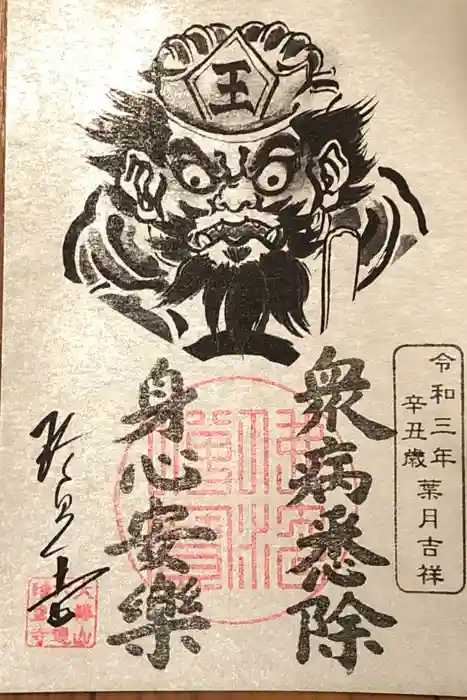 王
令和三年
辛丑歳 葉月吉祥
衆病悉除
身心安樂